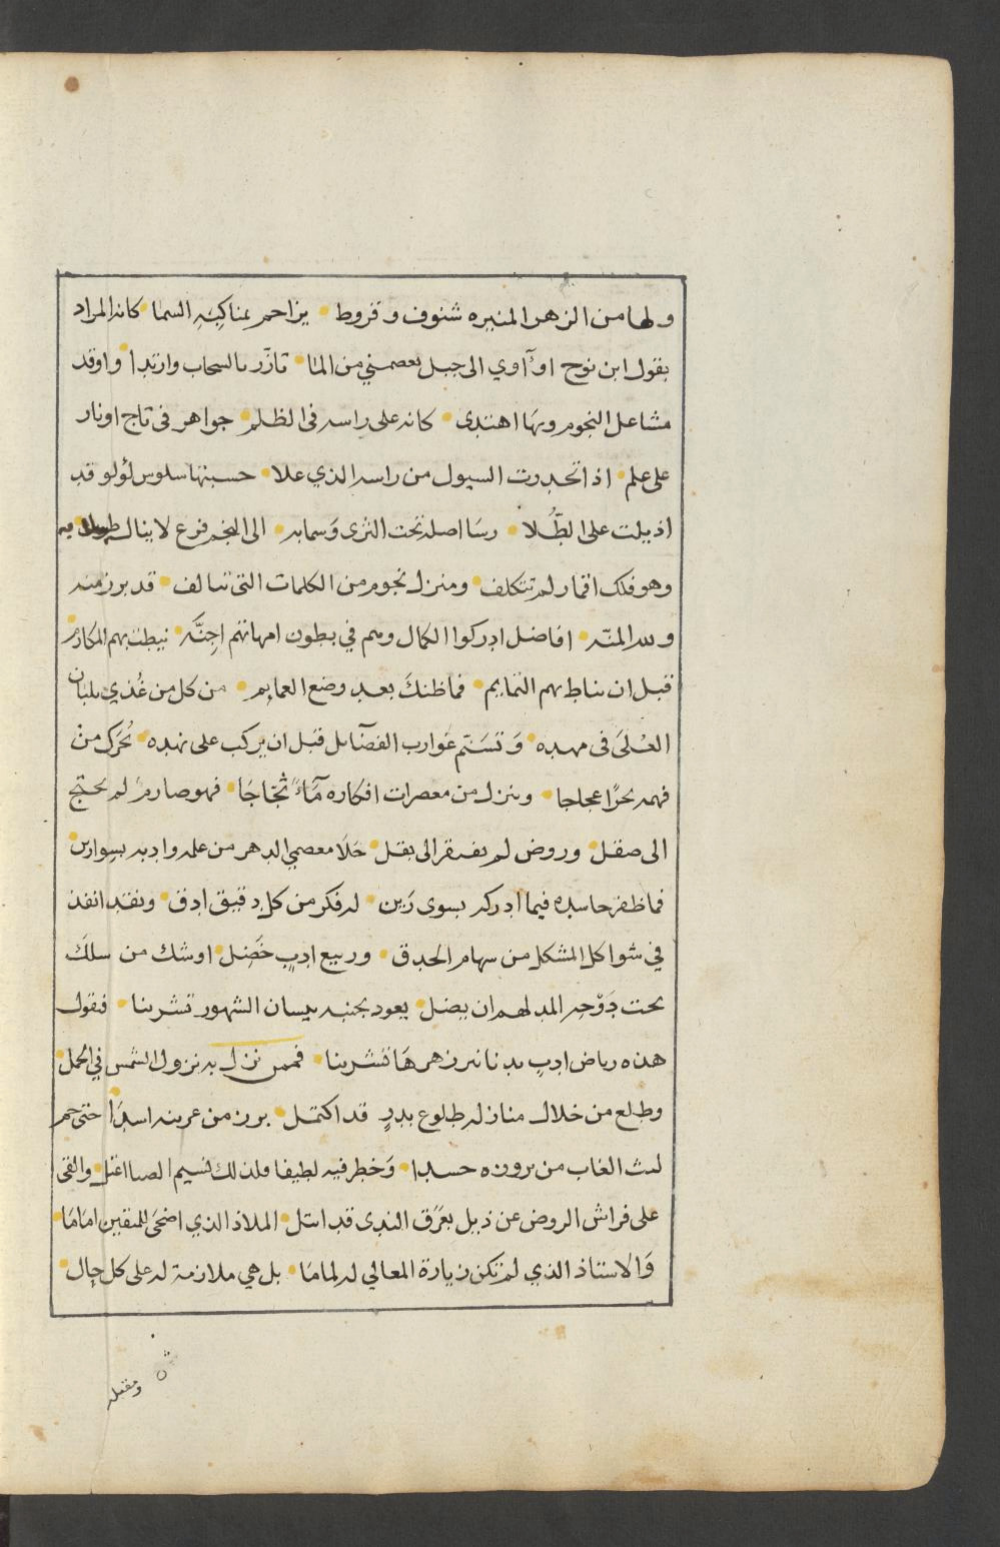 ولها من الزهر المنيره شنوف وقروط يزاحم بمناكبه السما كانه المراد
بقول ابن نوح او آوي الى جبل يعصمني من الما تازر بالسحاب وارتدا واوقد
مشاعل النجوم وبها اهتدى كانه على راسه في الظلم جواهر في تاج او نار
على علم اذا تحدرت السيول من راسه الذي علا حسبتها سلوس لؤلو قد
اذيلت على الطُّلا رسا اصله تحت الثرى وسما به الى النجم فرع لا ينال طويل فيه
وهو فلك اقمار لم تتكلف ومنزل نجوم من الكلمات التي تتالف قد برز منه
ولله المنّه افاضل ادركوا الكمال وهم في بطون امهاتهم اجنَّه نيطت بهم المكارم
قبل ان تناط بهم التمايم فما ظنك بعد وضع العمايم من كل من غُذي بلبان
العُلىَ في مهده وَتسَنّم غوارب الفضآىل قبل ان يركب على نهده تحرك من
فهمه بحرًا عجاجا وينزل من معصرات افكاره مآءً ثجّاجًا فهو صارمٌ لم يحتج
الى صقل وروض لم يفتقر الى بقل حَلاَ معصمي الدهر من علمه وادبه بسوارين
فما ظفر حاسده فيما ادركه بسوى رَين له فكر من كل دقيق ادق ونقد انفذ
في شواكل المشكل من سهام الحدق وربيع ادبٍ خَضِل اوشك من سلك
تحت دَوْحه المدلهم ان يضل يعود بجنبه نيسان الشهور تشرينا فيقول
هذه رياض ادبٍ بدنانير زهرهَا تشرينا فممن نزل به نزول الشمس في الحمل
وطلع من خلال منازله طلوع بدرٍ قد اكتمل برز من عرينه اسدًا حتى حم
ليث الغاب من بروزه حسدا وَخطر فيه لطيفا ولذلك نسيم الصبا اعتل والقى
على فراش الروض عن ذيل بعَرق الندى قد ابتل الملاذ الذي اضحَى للمتقين امَامًا
وَالاستاذ الذي لم تكن زيارة المعالي له لمامًا بل هي ملازمة له على كل حال
ومقبله